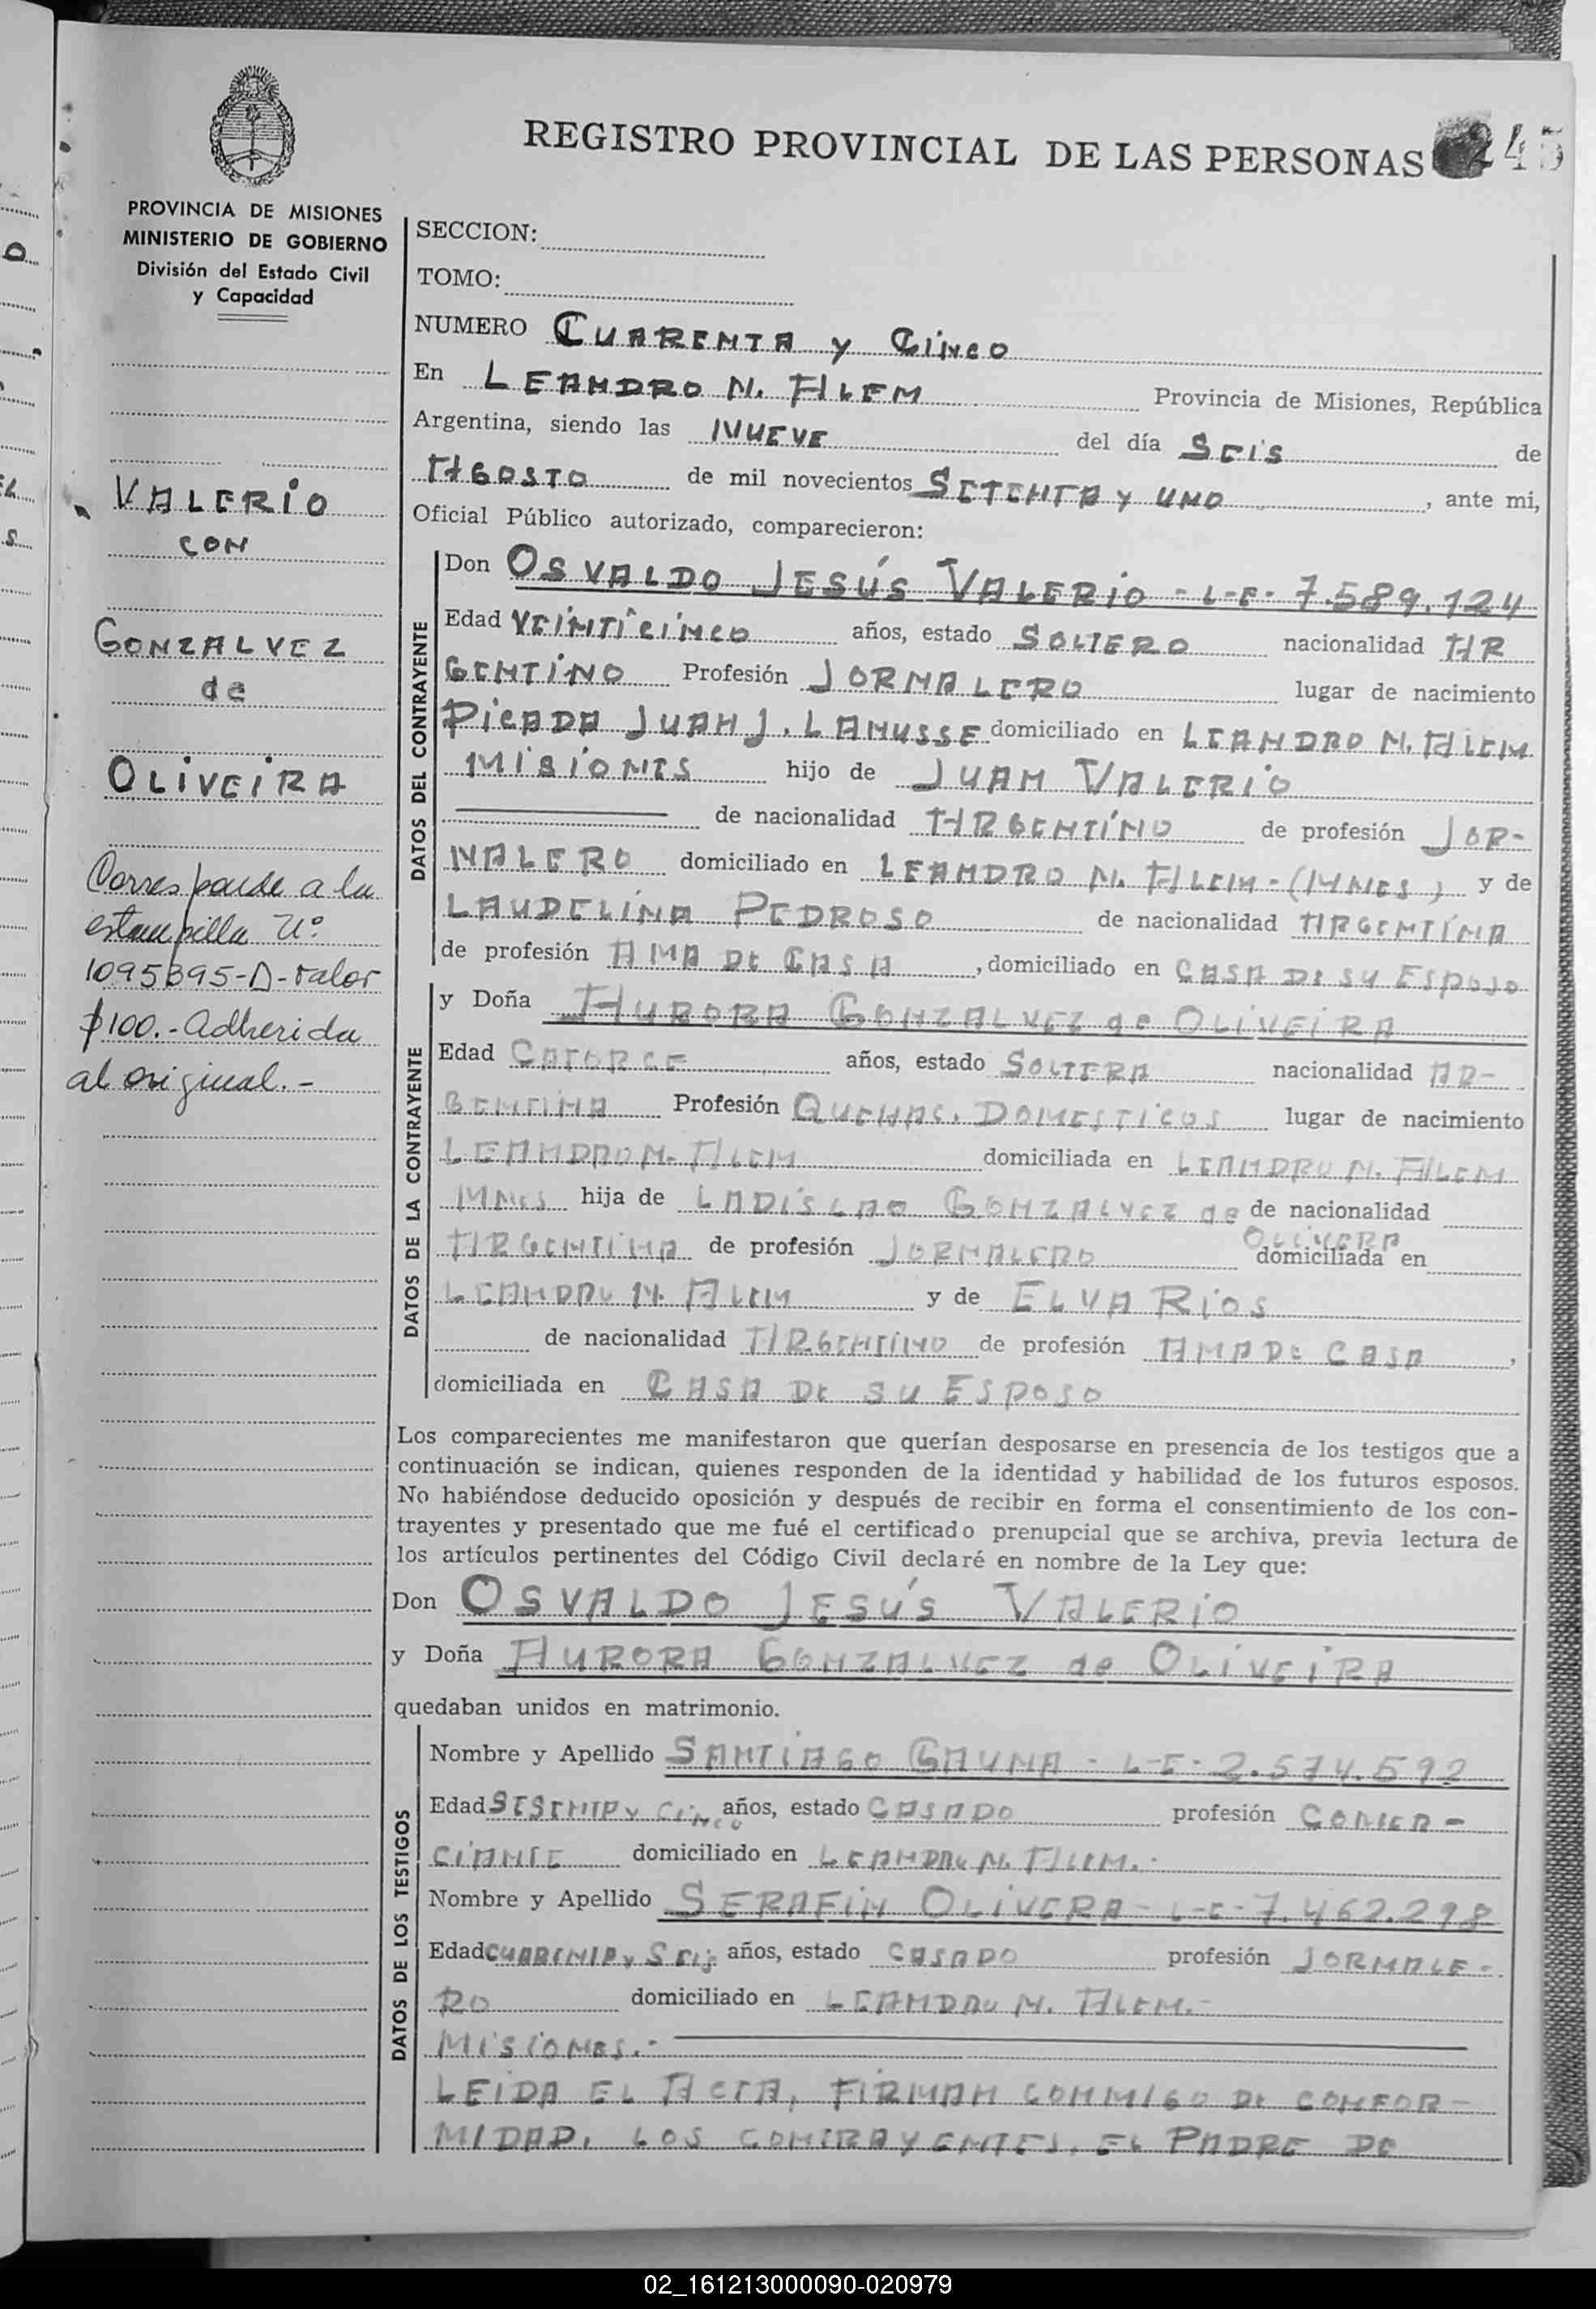 REGISTRO PROVINCIAL DE LAS PERSONAS 245
PROVINCIA DE MISIONES
MINISTERIO DE GOBIERNO
División del Estado Civil
y Capacidad
VALERIO
CON
GONZALVEZ
de
OLIVEIRA
Corresponde a la
estampilla Nº
1095395-D-valor
$100.- Adherida
al original.-
SECCION:
TOMO:
NUMERO CUARENTA y CINCO
En LEANDRO N. ALEM Provincia de Misiones, República
Argentina, siendo las NUEVE del día SEIS de
AGOSTO de mil novecientos SETENTA y UNO, ante mi,
Oficial Público autorizado, comparecieron:
DATOS DEL CONTRAYENTE
Don OSVALDO JESÚS VALERIO - L-E- 7.589.124
Edad VEINTICINCO años, estado SOLTERO nacionalidad AR
GENTINO Profesión JORNALERO lugar de nacimiento
PICADA JUAN J. LANUSSE domiciliado en LEANDRO N. ALEM
MISIONES hijo de JUAN VALERIO
de nacionalidad ARGENTINO de profesión JOR-
NALERO domiciliado en LEANDRO N. ALEM-(MNES) y de
LAUDELINA PEDROSO de nacionalidad ARGENTINA
de profesión AMA DE CASA, domiciliado en CASA DE SU ESPOSO
DATOS DE LA CONTRAYENTE
y Doña AURORA GONZALVEZ de OLIVEIRA
Edad CATORCE años, estado SOLTERA nacionalidad AR-
GENTINA Profesión QUEHAC. DOMESTICOS lugar de nacimiento
LEANDRO N. ALEM domiciliada en LEANDRO N. ALEM
MNES hija de LADISLAO GONZALVEZ de de nacionalidad
OLIVERA
ARGENTINA de profesión JORNALERO domiciliada en
LEANDRO N. ALEM y de ELVA RIOS
de nacionalidad ARGENTINO de profesión AMA DE CASA,
domiciliada en CASA DE SU ESPOSO
Los comparecientes me manifestaron que querían desposarse en presencia de los testigos que a
continuación se indican, quienes responden de la identidad y habilidad de los futuros esposos.
No habiéndose deducido oposición y después de recibir en forma el consentimiento de los con-
trayentes y presentado que me fué el certificado prenupcial que se archiva, previa lectura de
los artículos pertinentes del Código Civil declaré en nombre de la Ley que:
Don OSVALDO JESÚS VALERIO
y Doña AURORA GONZALVEZ de OLIVEIRA
quedaban unidos en matrimonio.
DATOS DE LOS TESTIGOS
Nombre y Apellido SANTIAGO GAUNA - L-E- 2.574.592
Edad SESENTA y CINCO años, estado CASADO profesión COMER-
CIANTE domiciliado en LEANDRO N. ALEM.-
Nombre y Apellido SERAFIN OLIVERA - L-E- 7.462.298
Edad CUARENTA y SEIS años, estado CASADO profesión JORNALE-
RO domiciliado en LEANDRO N. ALEM.-
MISIONES.-
LEIDA EL ACTA, FIRMAN CONMIGO DE CONFOR-
MIDAD, LOS CONTRAYENTES, EL PADRE DE
02_161213000090-020979